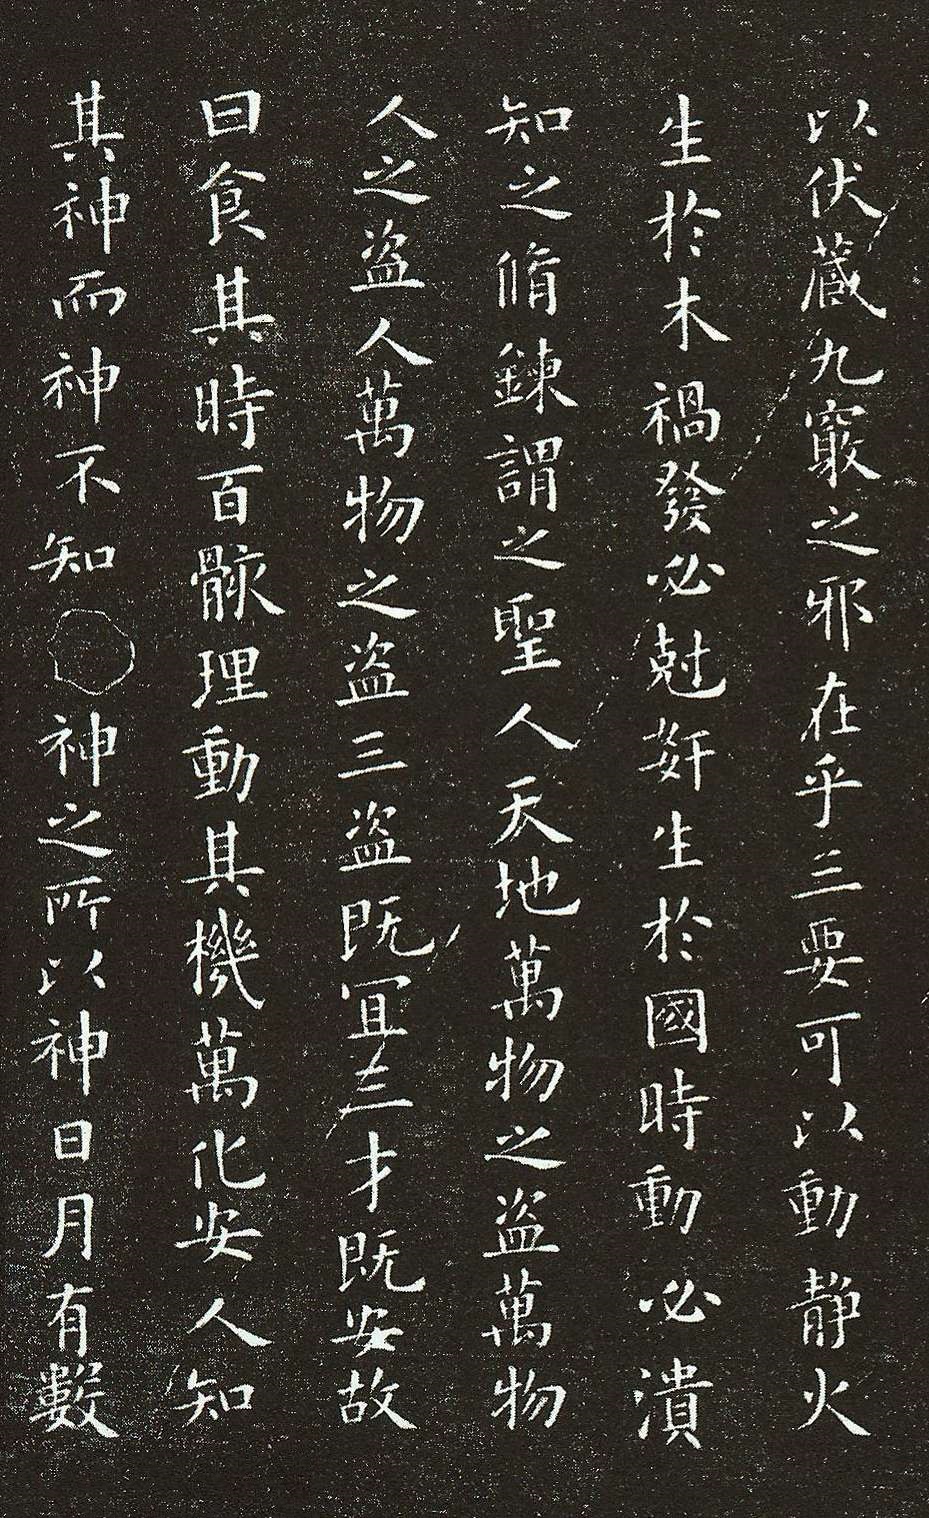 以伏藏九竅之邪在乎三要可以動靜火
生於木禍發必剋姧生於國時動必潰
知之脩鍊謂之聖人天地萬物之盗萬物
人之盗人萬物之盗三盗既冝三才既安故
曰食其時百骸理動其機萬化安人知
其神而神不知神之所以神日月有數